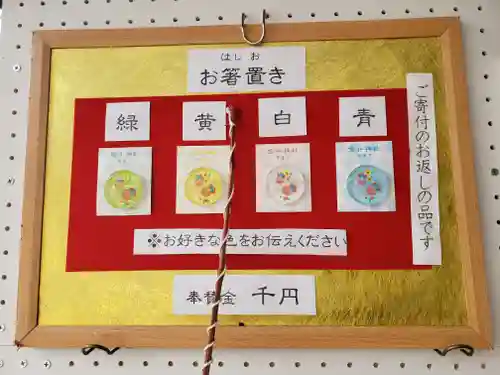 はし お
お箸置き
緑
黄
白
青
※お好きな色をお伝えください
奉賛金 千円
ご寄付のお返しの品です